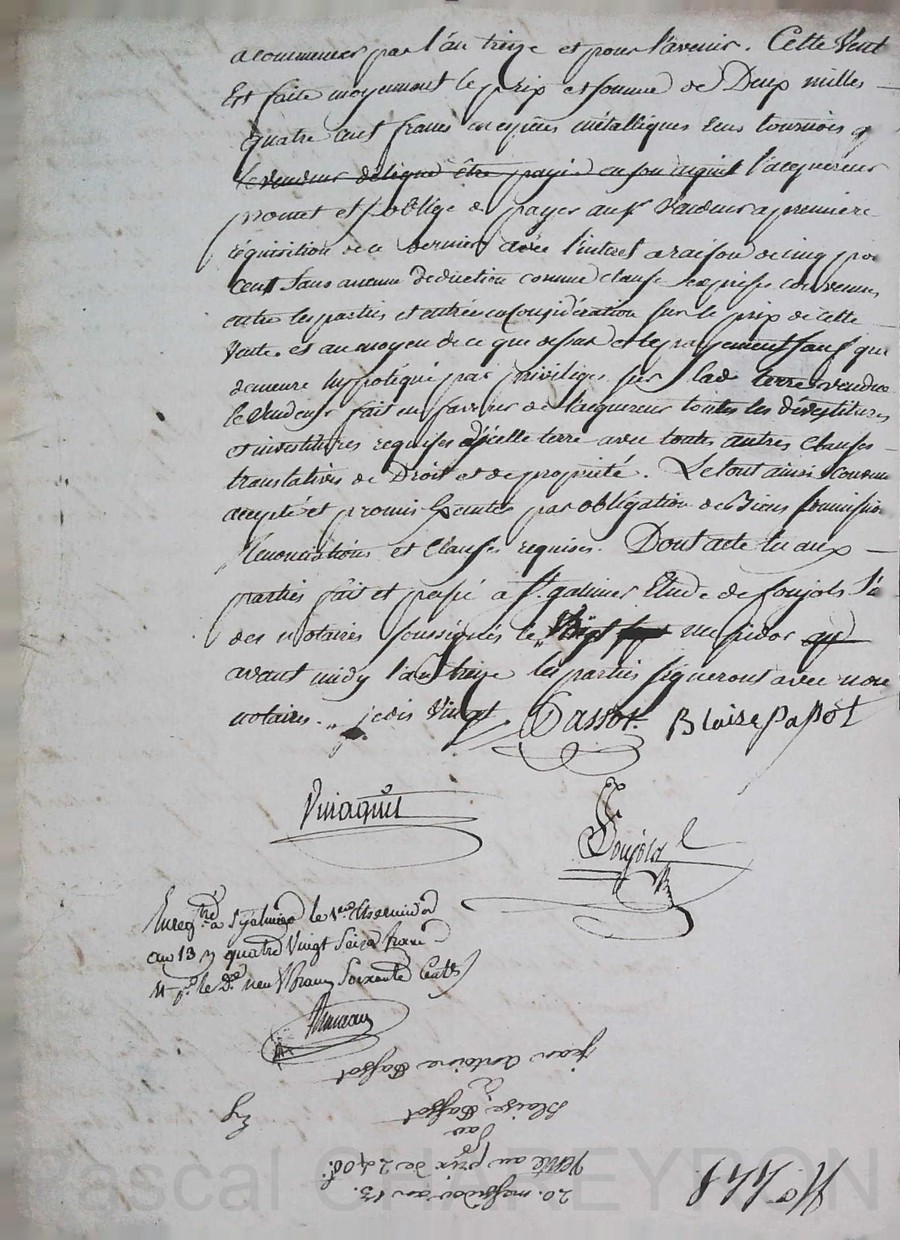 a commencer par l'an treize et pour l'avenir. Cette Vent
Est faite moyennant le prix et somme de Deux milles
quatre cent francs en espèces métalliques sens tournois q
le vendeur être payé en son argent l'acquereur
promet et s'oblige de payer au sr vendeur a premiere
réquisition de ce dernier avec l'intret a raison de cinq pou
cent sans aucune deduction comme clause expresse convenue
entre les parties et entrée en considération sur le prix de cette
Vente. et au moyen de ce que dessus et le payement sauf que
demeure hypotéqué par privilége sur lad terre vendue
le vendeur fait en faveur de l'acquereur toutes les dévestitures
et investitures requises d'icelle terre avec toutes autres Clauses
translatives de Droit et de propriété. Le tout ainsi convenu
accepté et promis par obligation de Biens soumission
Renonciations et Clauses requises. Dont acte lu aux
parties fait et passé à St. galmier Etude de Soujols l'u
des notaires soussignés le Vingt messidor
avant midy l'an treize les parties signeront avec nous
notaires. „ je dis Vingt Dassot. Blaise Papôt
Soujols
Enregtré a St galmier le 1er thermidor
an 13 R quatre Vingt Seize francs
pr le De neuf francs Soixante Centes
jean Antoine Dassot
a
Blaise Dassot
Vente au prix de 2400f.
20. messidor an 13.
No 448
Pascal CHAREYRON